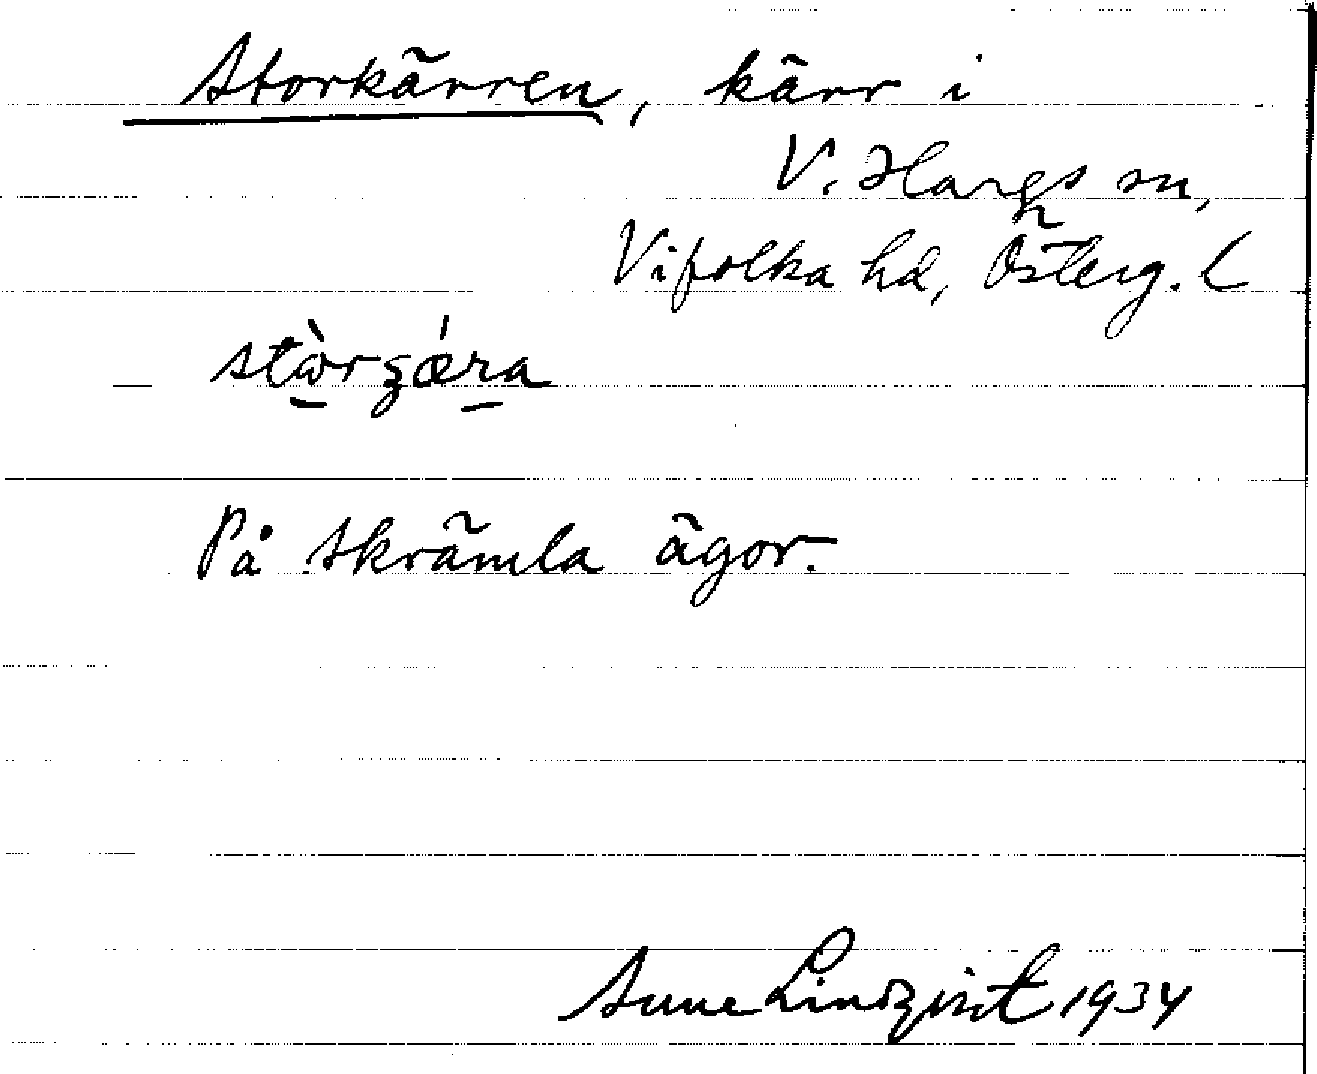 Storkärren, kärr i
V. Hargs sn,
Vifolka hd, Österg. l
stòrʒǽra
På Skrämla ägor.
Sune Lindqvist 1934